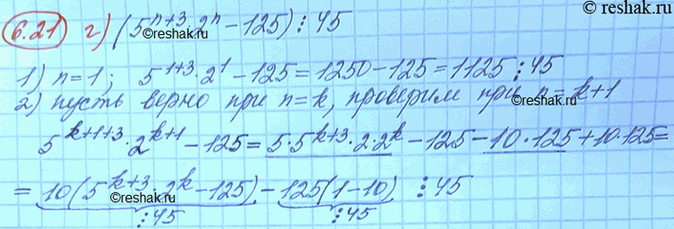 © reshak.ru
6.21 г) (5^{n+3} · 2^n - 125) ⋮ 45
1) n=1; 5^{1+3} · 2^1 - 125 = 1250 - 125 = 1125 ⋮ 45
2) пусть верно при n=k, проверим при n=k+1
5^{k+1+3} · 2^{k+1} - 125 = 5·5^{k+3} · 2·2^k - 125 - 10·125 + 10·125 =
= 10(5^{k+3} · 2^k - 125) - 125(1-10) ⋮ 45
⋮ 45 ⋮ 45
© reshak.ru